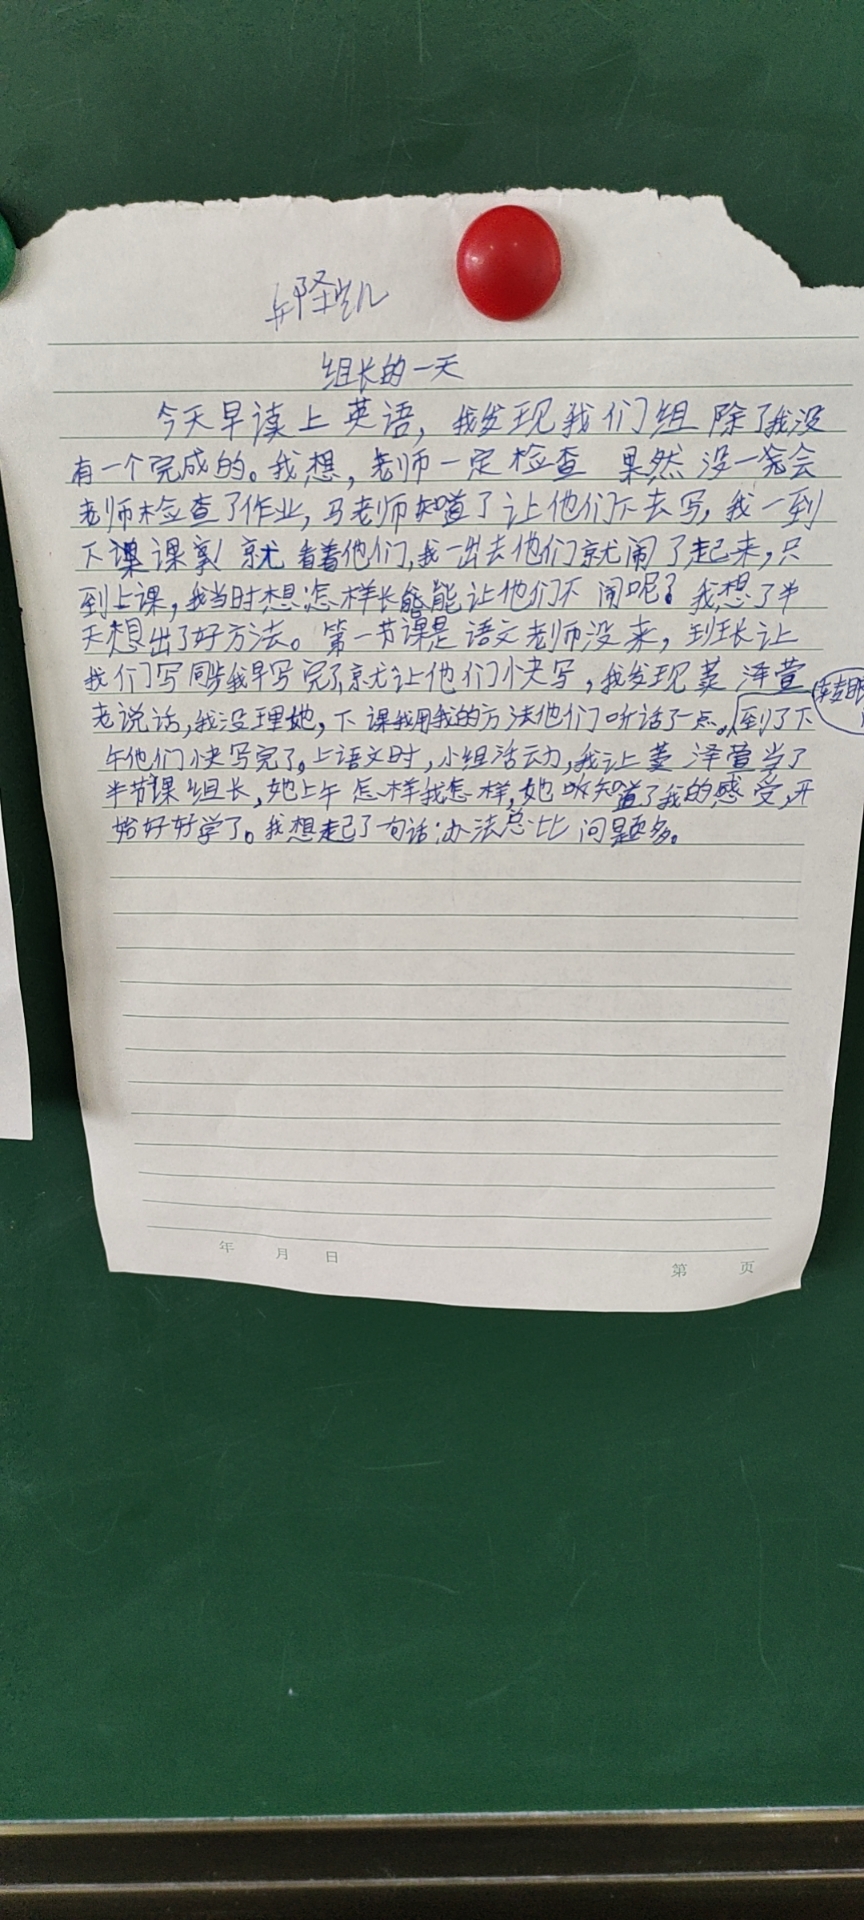 组长的一天
今天早读上英语，我发现我们组除了我没
有一个完成的。我想，老师一定检查 果然没一会
老师检查了作业，马老师知道了让他们下去写，我一到
下课 就看着他们，我一出去他们就闹了起来，只
到上课，我当时想怎样长能让他们不闹呢？我想了半
天想出了好方法。第一节课是语文老师没来，班长让
我们写同步我早写完了就让他们快写，我发现姜泽萱
老说话，我没理她，下课我用我的方法他们听话了一点。到了下
午他们快写完了。上语文时，小组活动，我让姜泽萱当了
半节课组长，她上午怎样我怎样，她知道了我的感受，开
始好好学了。我想起了句话：办法总比问题多。
年 月 日
第 页